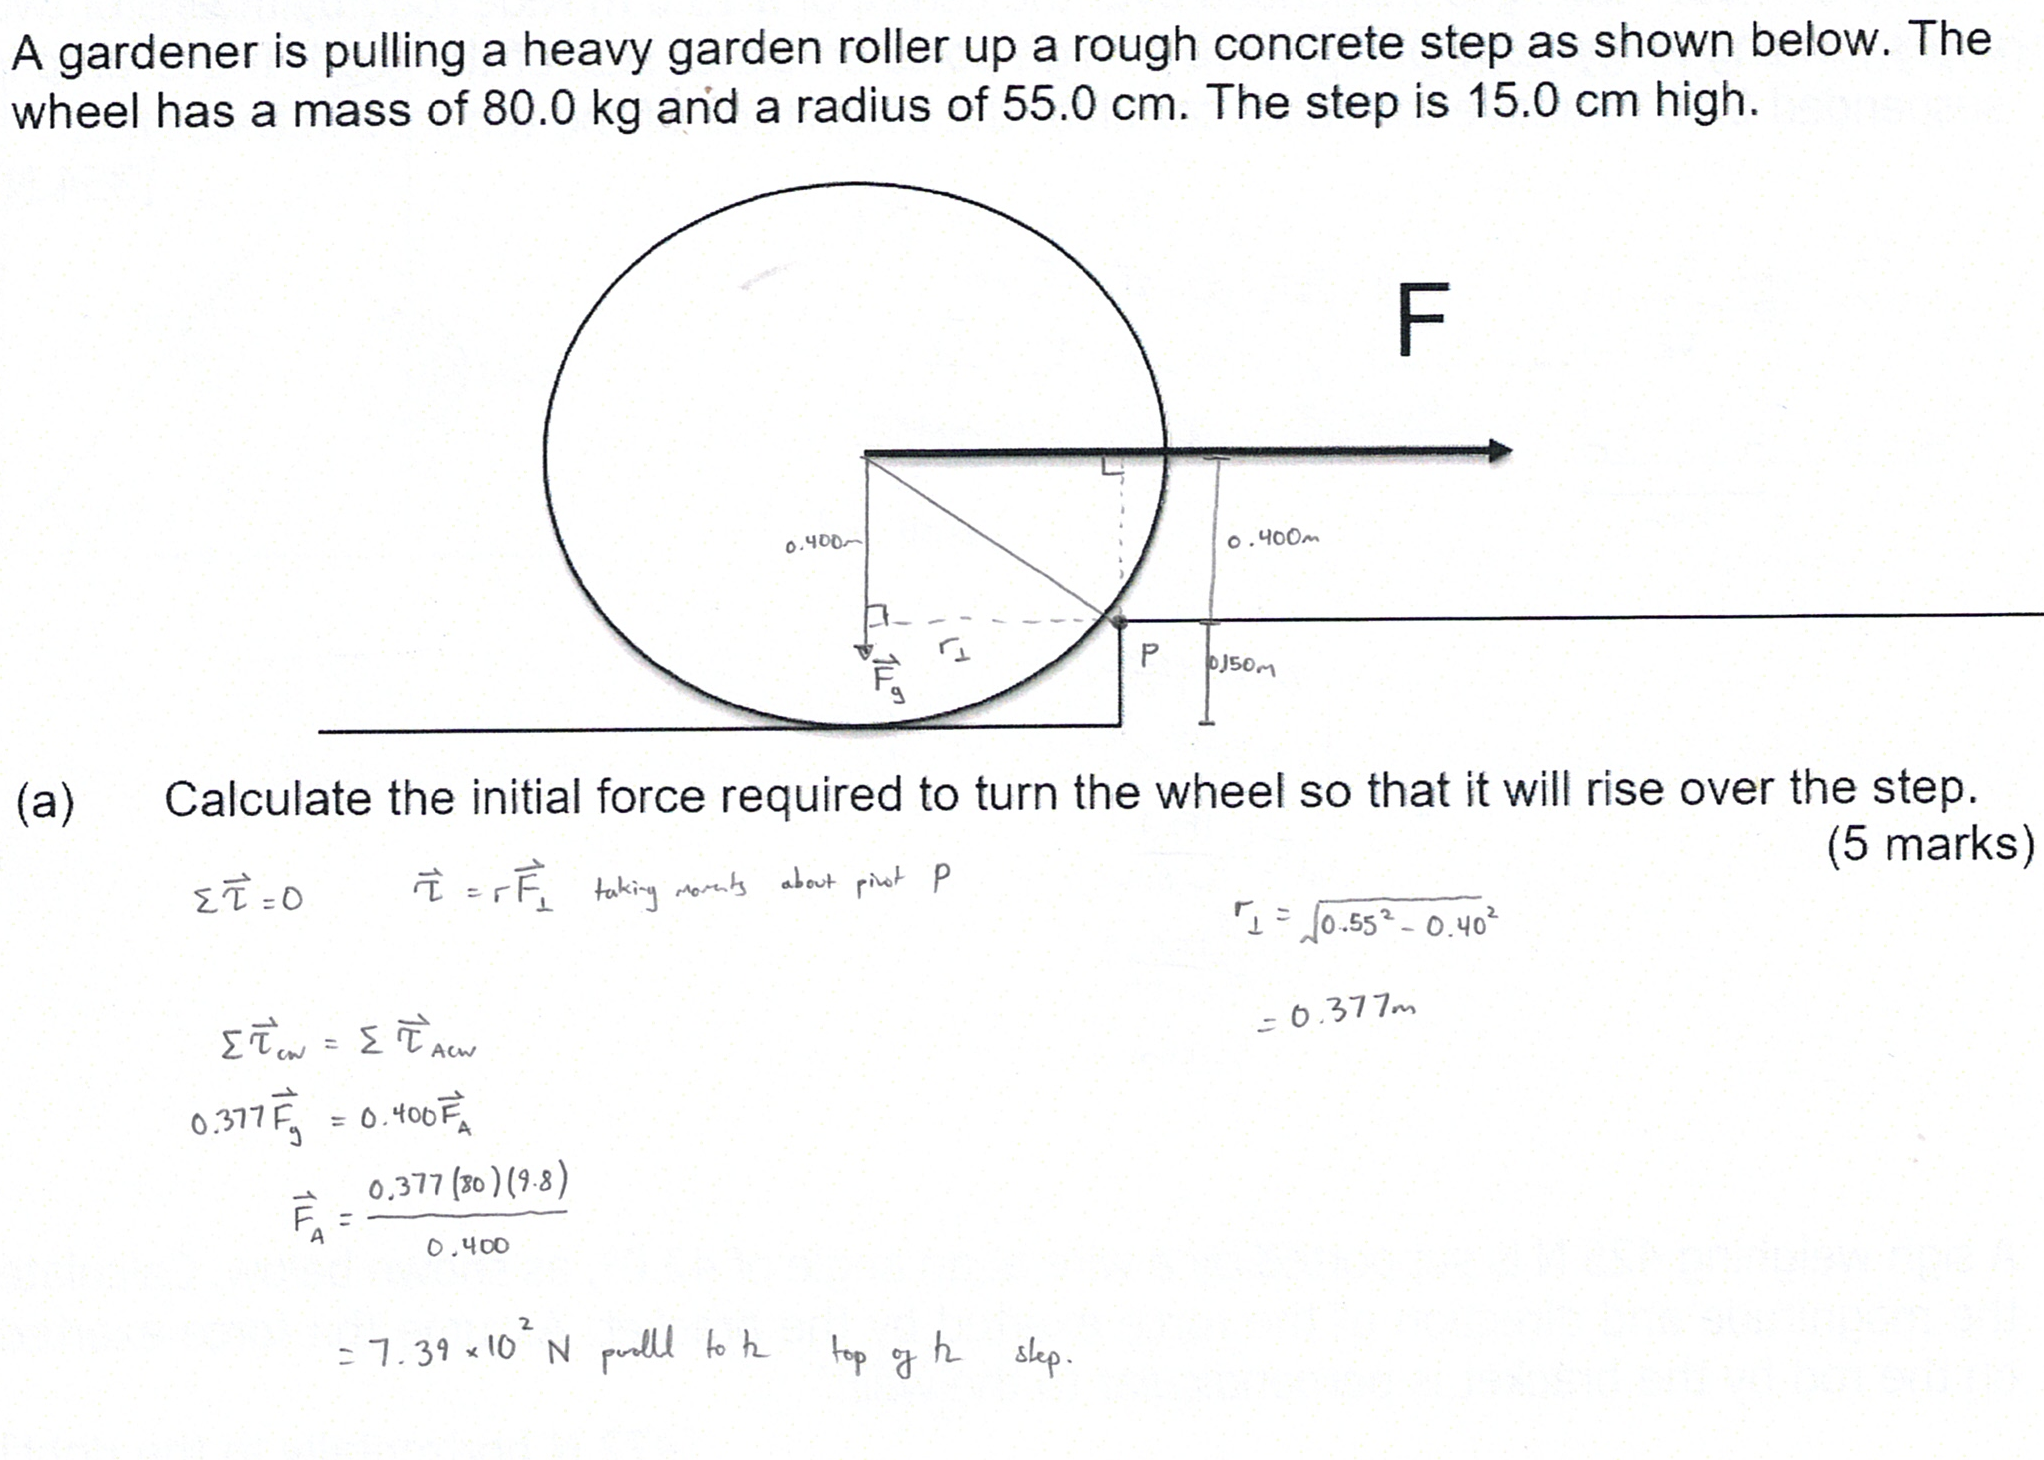 A gardener is pulling a heavy garden roller up a rough concrete step as shown below. The
wheel has a mass of 80.0 kg and a radius of 55.0 cm. The step is 15.0 cm high.
F
0.400m
0.400m
r⊥
P
0.150m
F⃗g
(a) Calculate the initial force required to turn the wheel so that it will rise over the step.
(5 marks)
Στ⃗ = 0 τ⃗ = rF⃗⊥ taking moments about pivot P
r⊥ = √0.55² - 0.40²
= 0.377m
Στ⃗cw = Στ⃗ACW
0.377F⃗g = 0.400F⃗A
F⃗A = 0.377(80)(9.8)
0.400
= 7.39 × 10² N to top of step.